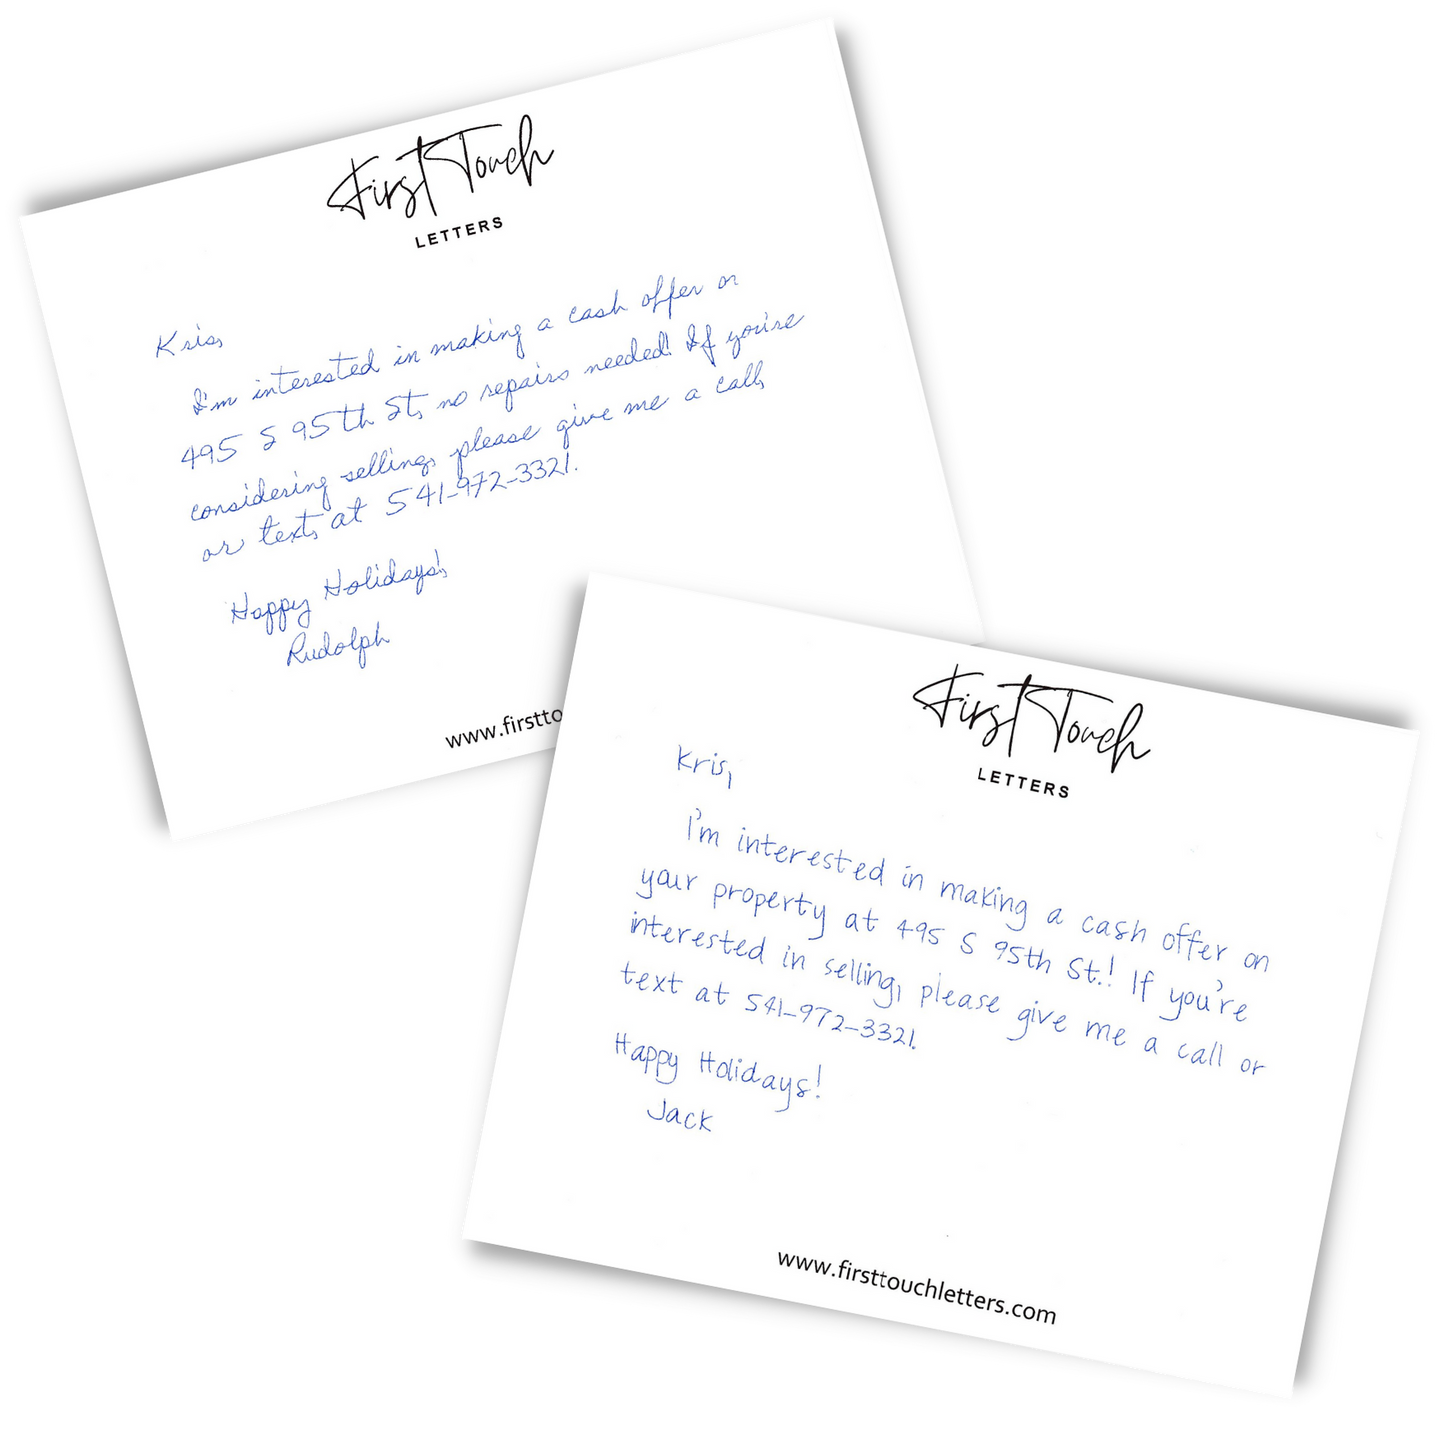 First Touch
LETTERS
Kris,
I'm interested in making a cash offer on
495 S 95th St, no repairs needed! If you're
considering selling, please give me a call,
or text, at 541-972-3321.
Happy Holidays!,
Rudolph
www.firstto
First Touch
LETTERS
Kris,
I'm interested in making a cash offer on
your property at 495 S 95th St.! If you're
interested in selling, please give me a call or
text at 541-972-3321.
Happy Holidays!
Jack
www.firsttouchletters.com